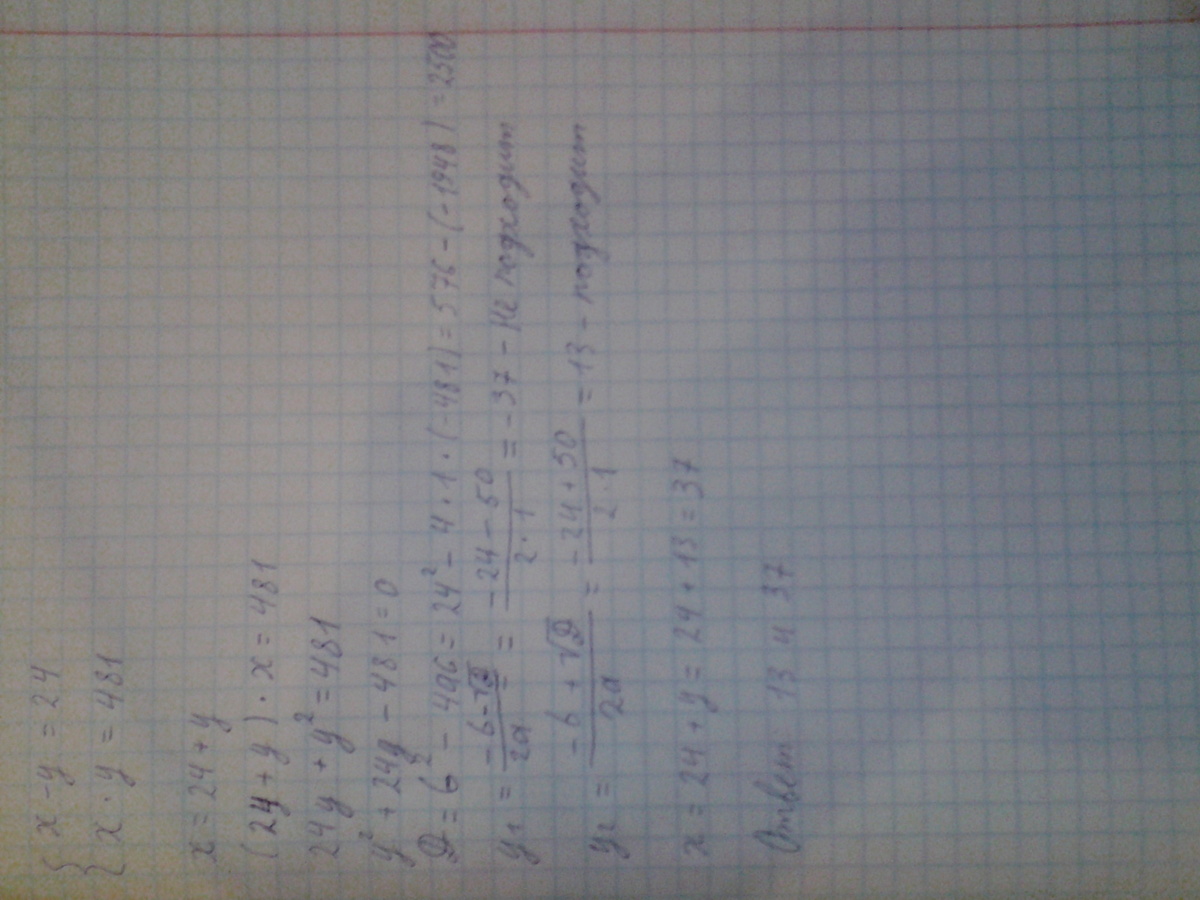 { x - y = 24
{ x · y = 481
x = 24 + y
(24 + y) · x = 481
24y + y² = 481
y² + 24y - 481 = 0
D = b² - 4ac = 24² - 4 · 1 · (-481) = 576 - (-1948) = 2500
y₁ = (-b - √D)/2a = (-24 - 50)/(2 · 1) = -37 - Не подходит
y₂ = (-b + √D)/2a = (-24 + 50)/(2 · 1) = 13 - подходит
x = 24 + y = 24 + 13 = 37
Ответ 13 и 37